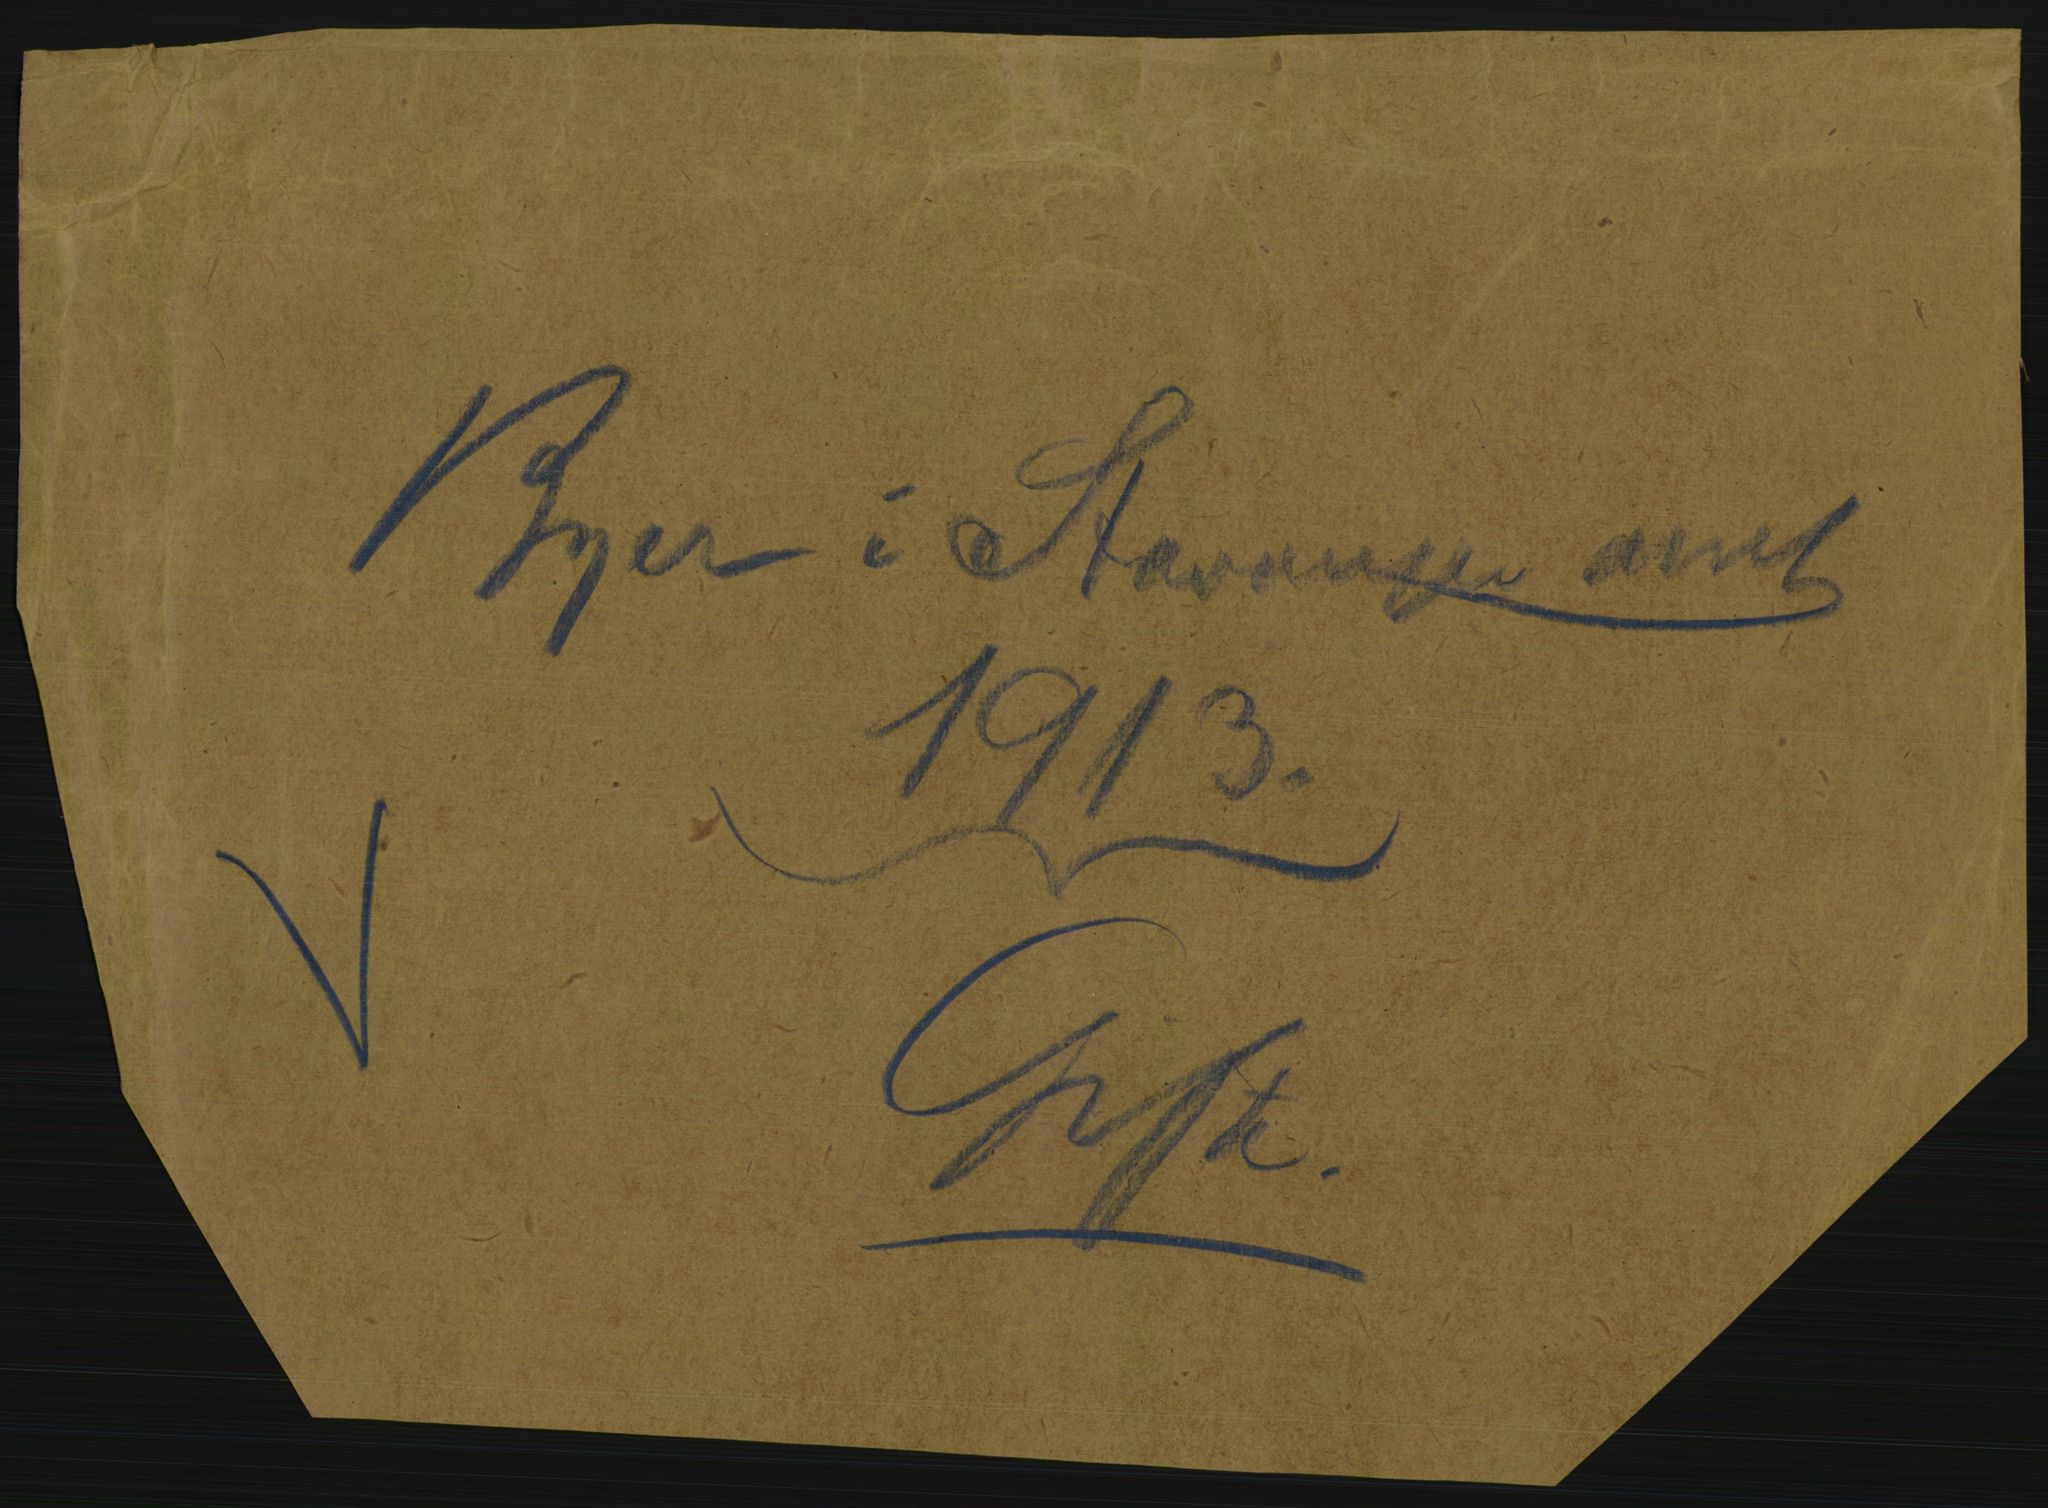 Byer i Stavanger amt
1913.
Gifte.